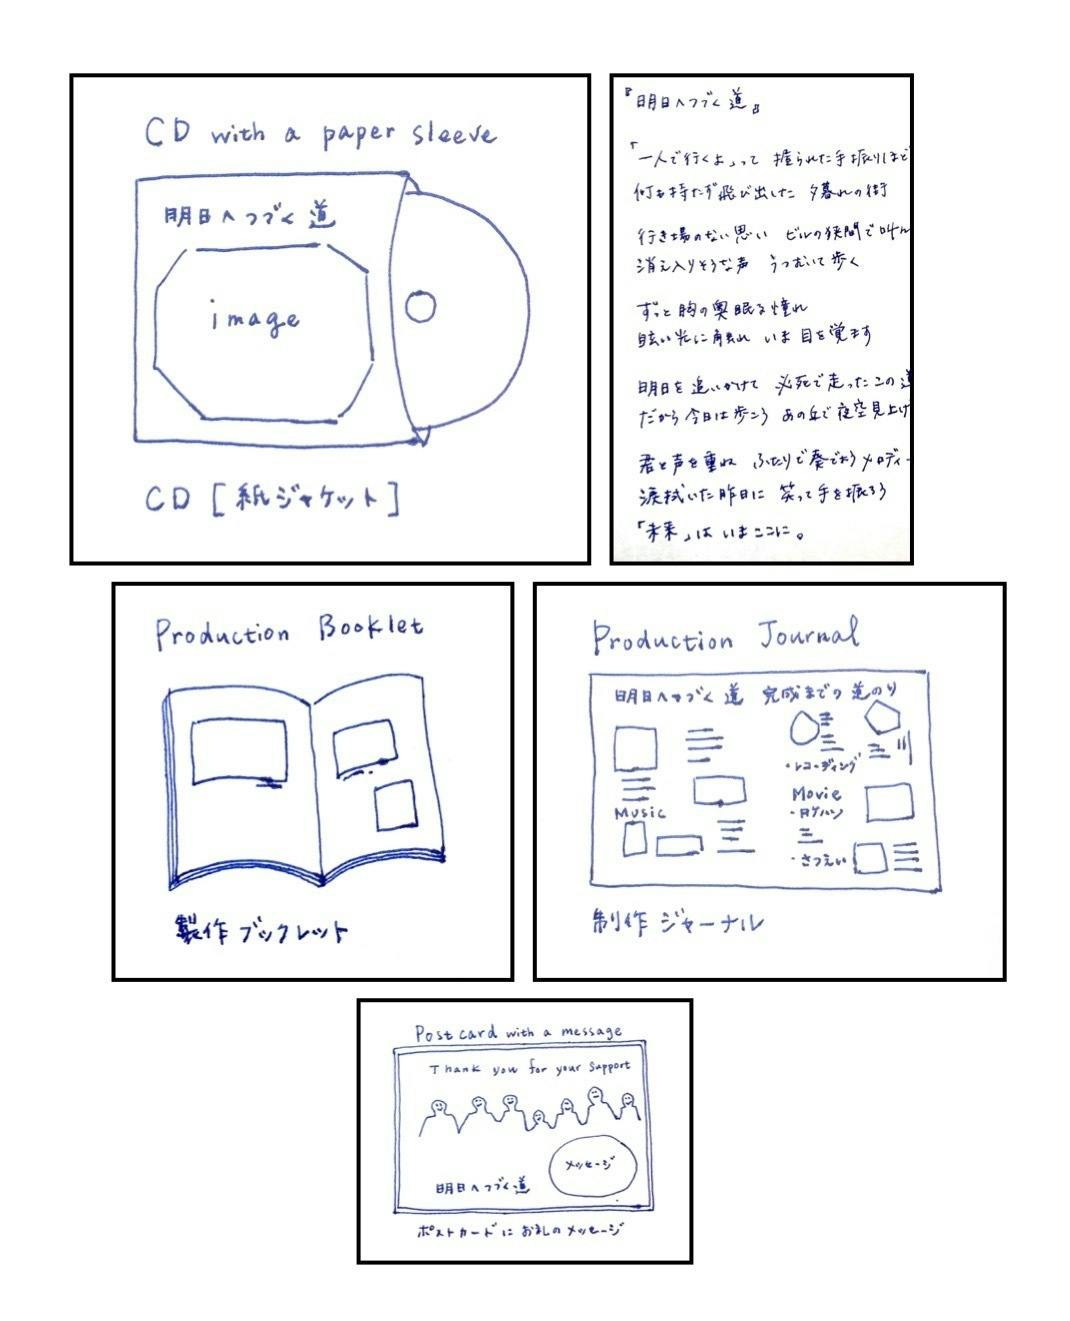 CD with a paper sleeve
明日へつづく道
image
CD [紙ジャケット]
『明日へつづく道』
「一人で行くよ」って 握られた手振りほど
何も持たず飛び出した 夕暮れの街
行き場のない思い ビルの狭間で叫ん
消え入りそうな声 うつむいて歩く
ずっと胸の奥眠る憧れ
眩い光に触れ いま目を覚ます
明日を追いかけて 必死で走ったこの道
だから今日は歩こう あの丘で夜空見上げ
君と声を重ね ふたりで奏でようメロディー
涙拭いた昨日に 笑って手を振ろう
「未来」はいまここに。
Production Booklet
製作ブックレット
Production Journal
明日へつづく道 完成までの道のり
・レコーディング
Music
Movie
・ロケハン
・さつえい
制作ジャーナル
Postcard with a message
Thank you for your support
メッセージ
明日へつづく道
ポストカードにお礼のメッセージ